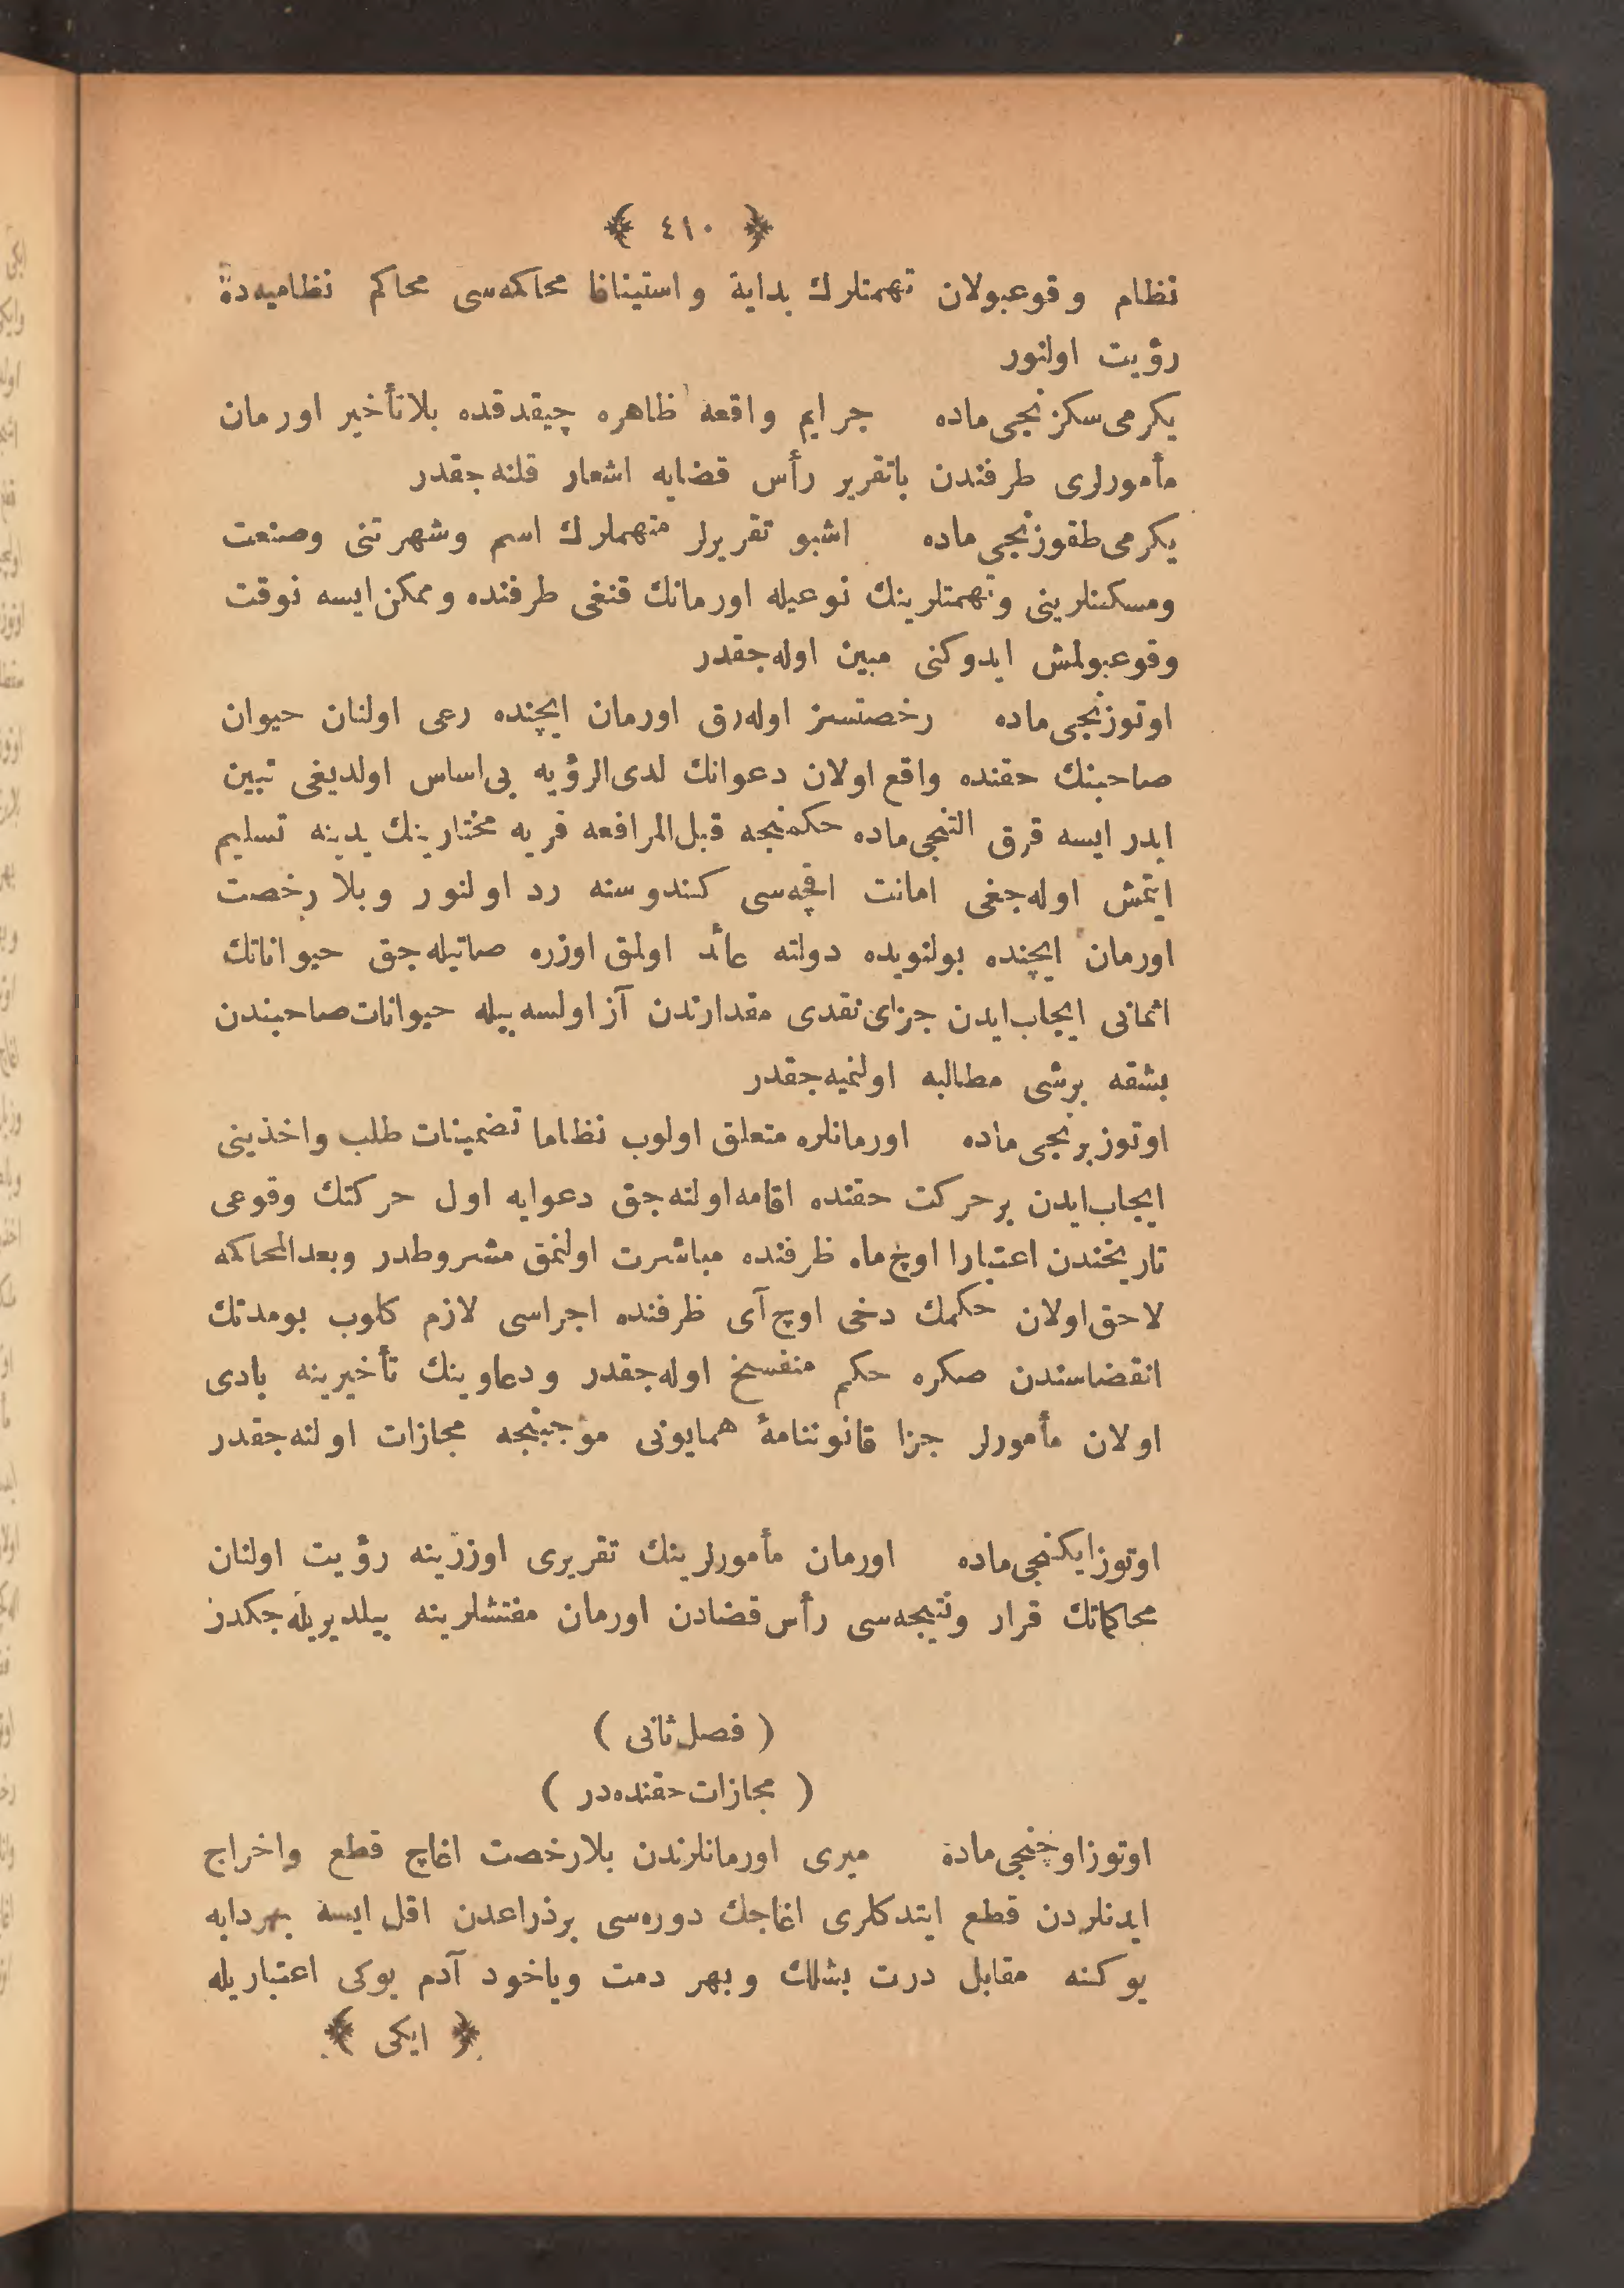 ﴿ ٤١٠ ﴾
نظام وقوعبولان تهمتلرك بداية واستينافا محاكمه‌سى محاكم نظاميه‌ده
رؤيت اولنور
يكرمى‌سكزنجى‌ماده جرايم واقعه ظاهره چيقدقده بلاتأخير اورمان
مأمورلرى طرفندن باتقرير رأس قضايه اشعار قلنه‌جقدر
يكرمى‌طقوزنجى‌ماده اشبو تقريرلر متهملرك اسم وشهرتنى وصنعت
ومسكنلرينى وتهمتلرينك نوعيله اورمانك قنغى طرفنده وممكن‌ايسه نه‌وقت
وقوعبولمش ايدوكنى مبين اوله‌جقدر
اوتوزنجى‌ماده رخصتسز اوله‌رق اورمان ايچنده رعى اولنان حيوان
صاحبنك حقنده واقع اولان دعوانك لدى‌الرؤيه بى‌اساس اولديغى تبين
ايدر ايسه قرق التنجى‌ماده حكمنجه قبل‌المرافعه قريه مختارينك يدينه تسليم
ايتمش اوله‌جغى امانت اقچه‌سى كندوسنه رد اولنور وبلا رخصت
اورمان ايچنده بولنوبده دولته عائد اولمق اوزره صاتيله‌جق حيواناتك
اثمانى ايجاب‌ايدن جزاى‌نقدى مقدارندن آز اولسه بيله حيوانات‌صاحبندن
بشقه برشى مطالبه اولنميه‌جقدر
اوتوزبرنجى‌ماده اورمانلره متعلق اولوب نظاما تضمينات طلب واخذينى
ايجاب‌ايدن برحركت حقنده اقامه‌اولنه‌جق دعوايه اول حركتك وقوعى
تاريخندن اعتبارا اوچ‌ماه ظرفنده مباشرت اولنمق مشروطدر وبعدالمحاكمه
لاحق‌اولان حكمك دخى اوچ‌آى ظرفنده اجراسى لازم كلوب بومدتك
انقضاسندن صكره حكم منفسخ اوله‌جقدر ودعاوينك تأخيرينه بادى
اولان مأمورلر جزا قانوننامهٔ همايونى موجبنجه مجازات اولنه‌جقدر
اوتوزايكنجى‌ماده اورمان مأمورلرينك تقريرى اوزرينه رؤيت اولنان
محاكماتك قرار ونتيجه‌سى رأس‌قضادن اورمان مفتشلرينه بيلديريله‌جكدر
( فصل‌ثانى )
( مجازات‌حقنده‌در )
اوتوزاوچنجى‌ماده ميرى اورمانلرندن بلارخصت اغاچ قطع واخراج
ايدنلردن قطع ايتدكلرى اغاجك دوره‌سى برذراعدن اقل ايسه بهردابه
يوكنه مقابل درت بشلك وبهر دمت وياخود آدم يوكى اعتباريله
﴿ ايكى ﴾